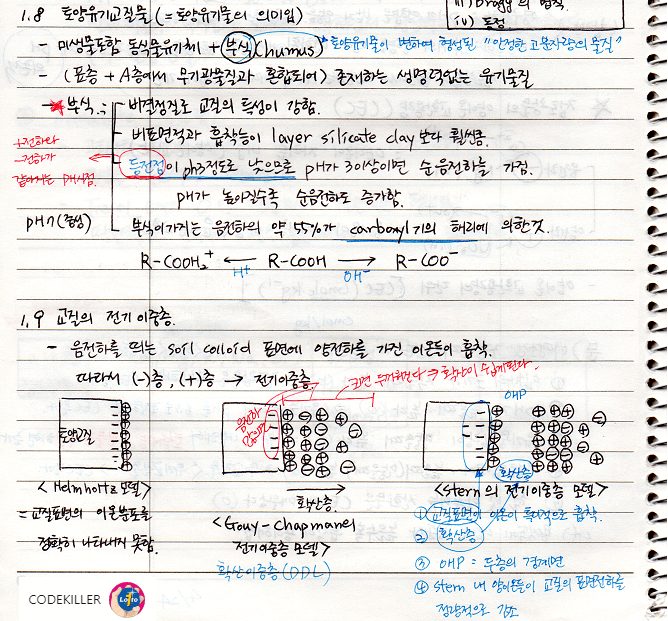 1.8 토양유기교질물 (= 토양유기물의 의미임)
iv) 동정
- 미생물포함 동식물유기체 + 부식(humus) * 토양유기물이 변하여 형성된 "안정한 고분자량의 물질"
- (표층 + A층에서 무기광물질과 혼합되어) 존재하는 생명력없는 유기물질
* 부식.: 비결정질로 교질의 특성이 강함.
비표면적과 흡착능이 layer silicate clay 보다 훨씬큼.
+전하와
-전하가
같아지는 pH시점.
등전점이 ph3정도로 낮으므로 pH가 3이상이면 순음전하를 가짐.
pH가 높아질수록 순음전하도 증가함.
pH7(중성)
부식이가지는 음전하의 약 55%가 carboxyl기의 해리에 의한것.
R-COOH₂⁺ ← R-COOH → R-COO⁻
H⁺ OH⁻
1.9 교질의 전기 이중층.
- 음전하를 띄는 soil colloid 표면에 양전하를 가진 이온들이 흡착.
따라서 (-)층, (+)층 → 전기이중층.
확산이 쉽게된다.
OHP
토양교질
음전하
확산층
확산층
<Helmholtz 모델>
= 교질표면의 이온분포를
정확히 나타내지 못함.
<Gouy-Chapman의
전기이중층 모델>
확산이중층(DDL)
<Stern의 전기이중층 모델>
① 교질표면에 이온이 특이적으로 흡착.
② 확산층
③ OHP = 두층의 경계면
④ Stern 내 양이온들이 교질의 표면전하를
직량적으로 감소
CODEKILLER
Lotto